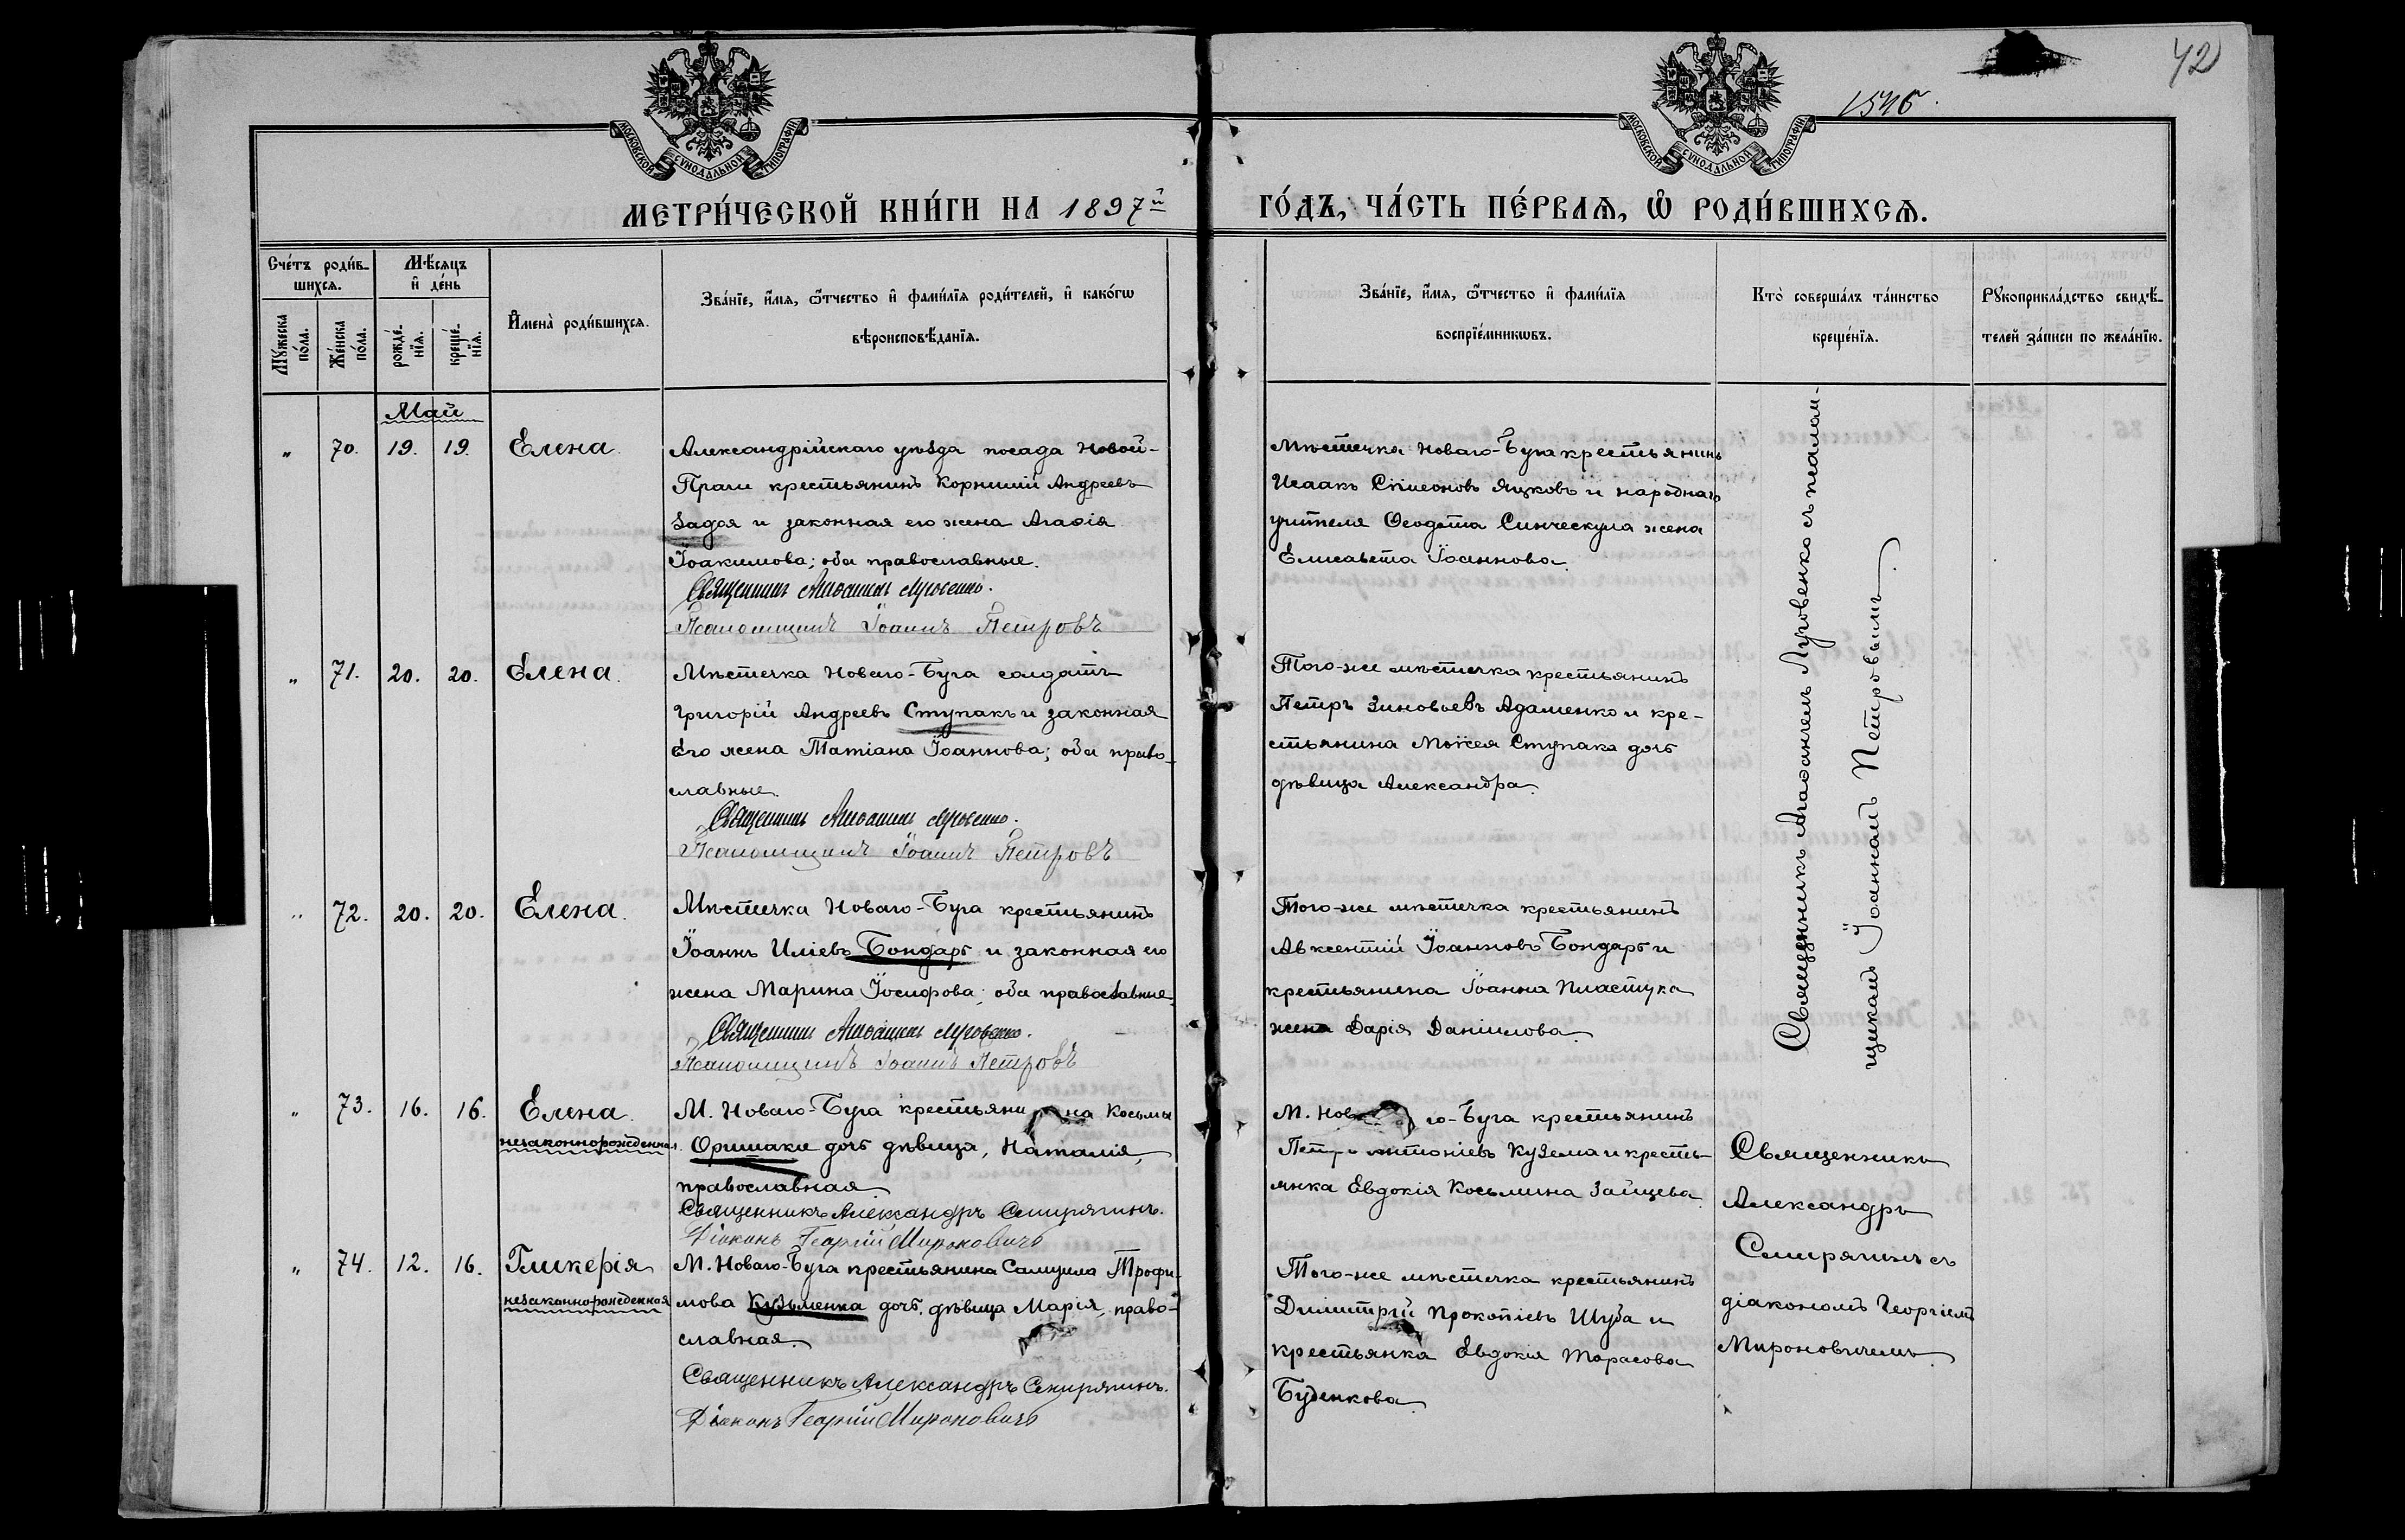 42
1546.
МОСКОВСКОЙ СѴНОДАЛЬНОЙ ТИПОГРАФІИ
МОСКОВСКОЙ СѴНОДАЛЬНОЙ ТИПОГРАФІИ
МЕТРИ́ЧЕСКОЙ КНИ́ГИ НА 1897й ГО́ДЪ, ЧА́СТЬ ПЕ́РВАѦ, Ѡ҆ РОДИ́ВШИХСѦ.
Сче́тъ роди́в-
шихсѧ.
Мꙋ́жеска по́ла.
Же́нска по́ла.
Мѣ́сѧцъ
и҆ де́нь
рожде́-
нїѧ.
креще́-
нїѧ.
И҆мена̀ роди́вшихсѧ.
Зва́нїе, и҆́мѧ, ѻ҆́тчество и҆ фами́лїѧ роди́телей, и҆ како́гѡ
вѣроисповѣ́данїѧ.
Зва́нїе, и҆́мѧ, ѻ҆́тчество и҆ фами́лїѧ
воспрїе́мникѡвъ.
Кто̀ соверша́лъ та́инство
креще́нїѧ.
Рꙋкоприкла́дство свидѣ́-
телей за́писи по жела́нїю.
Май
" 70. 19. 19. Елена.
Александрійскаго уѣзда посада Новой-
Праги крестьянинъ Корнилій Андреевъ
Задоя и законная его жена Агафія
Іоакимова; оба православные.
Священникъ Агафангелъ Луговенко.
Псаломщикъ Іоаннъ Петровъ
Мѣстечка Новаго-Буга крестьянинъ
Исаакъ Симеоновъ Яцковъ и народнаго
учителя Ѳеодота Синческула жена
Елисавета Іоаннова.
Священникъ Агафангелъ Луговенко съ псалом-
щикомъ Іоанномъ Петровымъ.
" 71. 20. 20. Елена.
Мѣстечка Новаго-Буга солдатъ
Григорій Андреевъ Ступакъ и законная
его жена Татіана Іоаннова; оба право-
славные.
Священникъ Агафангелъ Луговенко.
Псаломщикъ Іоаннъ Петровъ
Того-же мѣстечка крестьянинъ
Петръ Зиновьевъ Адаменко и кре-
стьянина Моисея Ступака дочь
дѣвица Александра.
" 72. 20. 20. Елена.
Мѣстечка Новаго-Буга крестьянинъ
Іоаннъ Иліевъ Бондарь и законная его
жена Марина Іосифова; оба православные.
Священникъ Агафангелъ Луговенко.
Псаломщикъ Іоаннъ Петровъ
Того-же мѣстечка крестьянинъ
Авксентій Іоанновъ Бондарь и
крестьянина Іоанна Пластука
жена Дарія Даніилова.
" 73. 16. 16. Елена.
незаконнорожденная.
М. Новаго-Буга крестьянина Косьмы
Оришаки дочь дѣвица, Наталія,
православная.
Священникъ Александръ Семирягинъ.
Діаконъ Георгій Мироновичъ
М. Новаго-Буга крестьянинъ
Петръ Антоніевъ Кузема и кресть-
янка Евдокія Косьмина Зайцева.
Священникъ
Александръ
Семирягинъ съ
діакономъ Георгіемъ
Мироновичемъ.
" 74. 12. 16. Гликерія
незаконнорожденная
М. Новаго-Буга крестьянина Самуила Трофи-
мова Кузьменка дочь, дѣвица Марія, право-
славная.
Священникъ Александръ Семирягинъ.
Діаконъ Георгій Мироновичъ
Того-же мѣстечка крестьянинъ
Димитрій Прокопіевъ Шуба и
крестьянка Евдокія Тарасова
Буденкова.